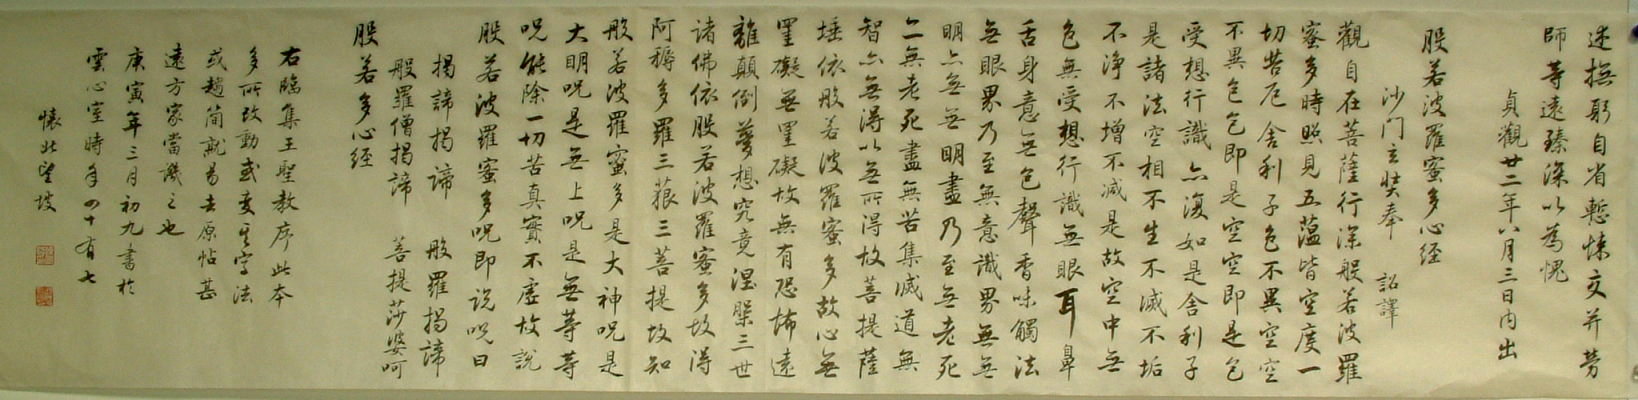 迷撫躬自省慙悚交并勞
師等遠臻深以為愧
貞觀廿二年八月三日內出
般若波羅蜜多心經
沙門玄奘奉 詔譯
觀自在菩薩行深般若波羅
蜜多時照見五蘊皆空度一
切苦厄舍利子色不異空空
不異色色即是空空即是色
受想行識亦復如是舍利子
是諸法空相不生不滅不垢
不淨不增不減是故空中無
色無受想行識無眼耳鼻
舌身意無色聲香味觸法
無眼界乃至無意識界無無
明亦無無明盡乃至無老死
亦無老死盡無苦集滅道無
智亦無得以無所得故菩提薩
埵依般若波羅蜜多故心無
罣礙無罣礙故無有恐怖遠
離顛倒夢想究竟涅槃三世
諸佛依般若波羅蜜多故得
阿耨多羅三藐三菩提故知
般若波羅蜜多是大神呪是
大明呪是無上呪是無等等
呪能除一切苦真實不虛故說
般若波羅蜜多呪即說呪曰
揭諦揭諦 般羅揭諦
般羅僧揭諦 菩提莎婆呵
般若多心經
右臨集王聖教序此本
多所改動或變其字法
或趨簡就易去原帖甚
遠方家當譏之也
庚寅年三月初九書於
雲心室時年四十有七
懷北望坡